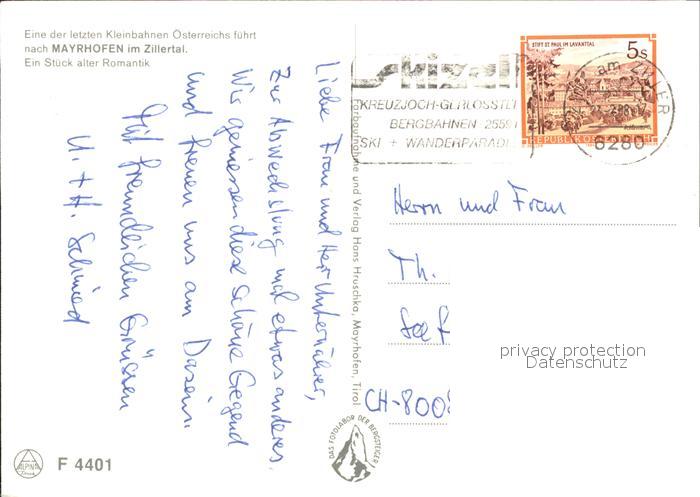 Eine der letzten Kleinbahnen Österreichs führt
nach MAYRHOFEN im Zillertal.
Ein Stück alter Romantik
Liebe Frau und Herr Unternährer,
Zur Abwechslung mal etwas anderes.
Wir geniessen diese schöne Gegend
und freuen uns am Dasein.
Mit freundlichen Grüssen
U. + H. Schmied
ALPINA
F 4401
Farbaufnahme und Verlag Hans Hruschka, Mayrhofen, Tirol
DAS FOTOLABOR DER BERGSTEIGER
KREUZJOCH-GERLOSSTEI
BERGBAHNEN 2559
SKI + WANDERPARADI
STIFT ST. PAUL IM LAVANTTAL
5s
REPUBLIK ÖSTERREICH
am ZILLER
6280
Herrn und Frau
Th.
CH-800
privacy protection
Datenschutz